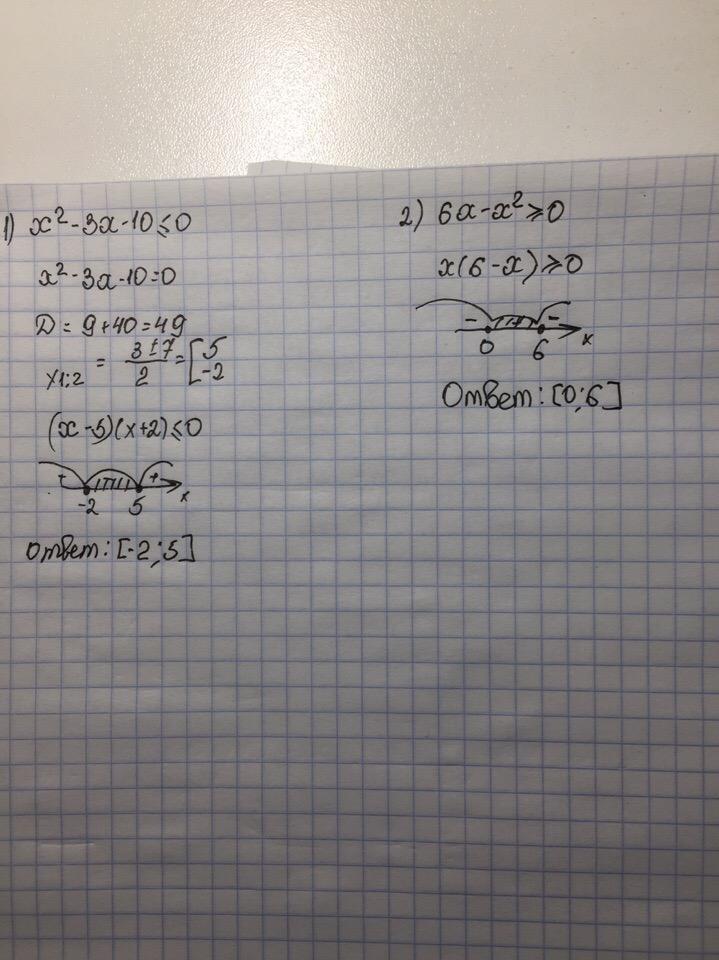 1) x² - 3x - 10 ≤ 0
x² - 3x - 10 = 0
D = 9 + 40 = 49
x1;2 = (3 ± 7)/2 = [5 -2
(x - 5)(x + 2) ≤ 0
+ +
-2 5 x
Ответ: [-2; 5]
2) 6x - x² ≥ 0
x(6 - x) ≥ 0
- + -
0 6 x
Ответ: [0; 6]